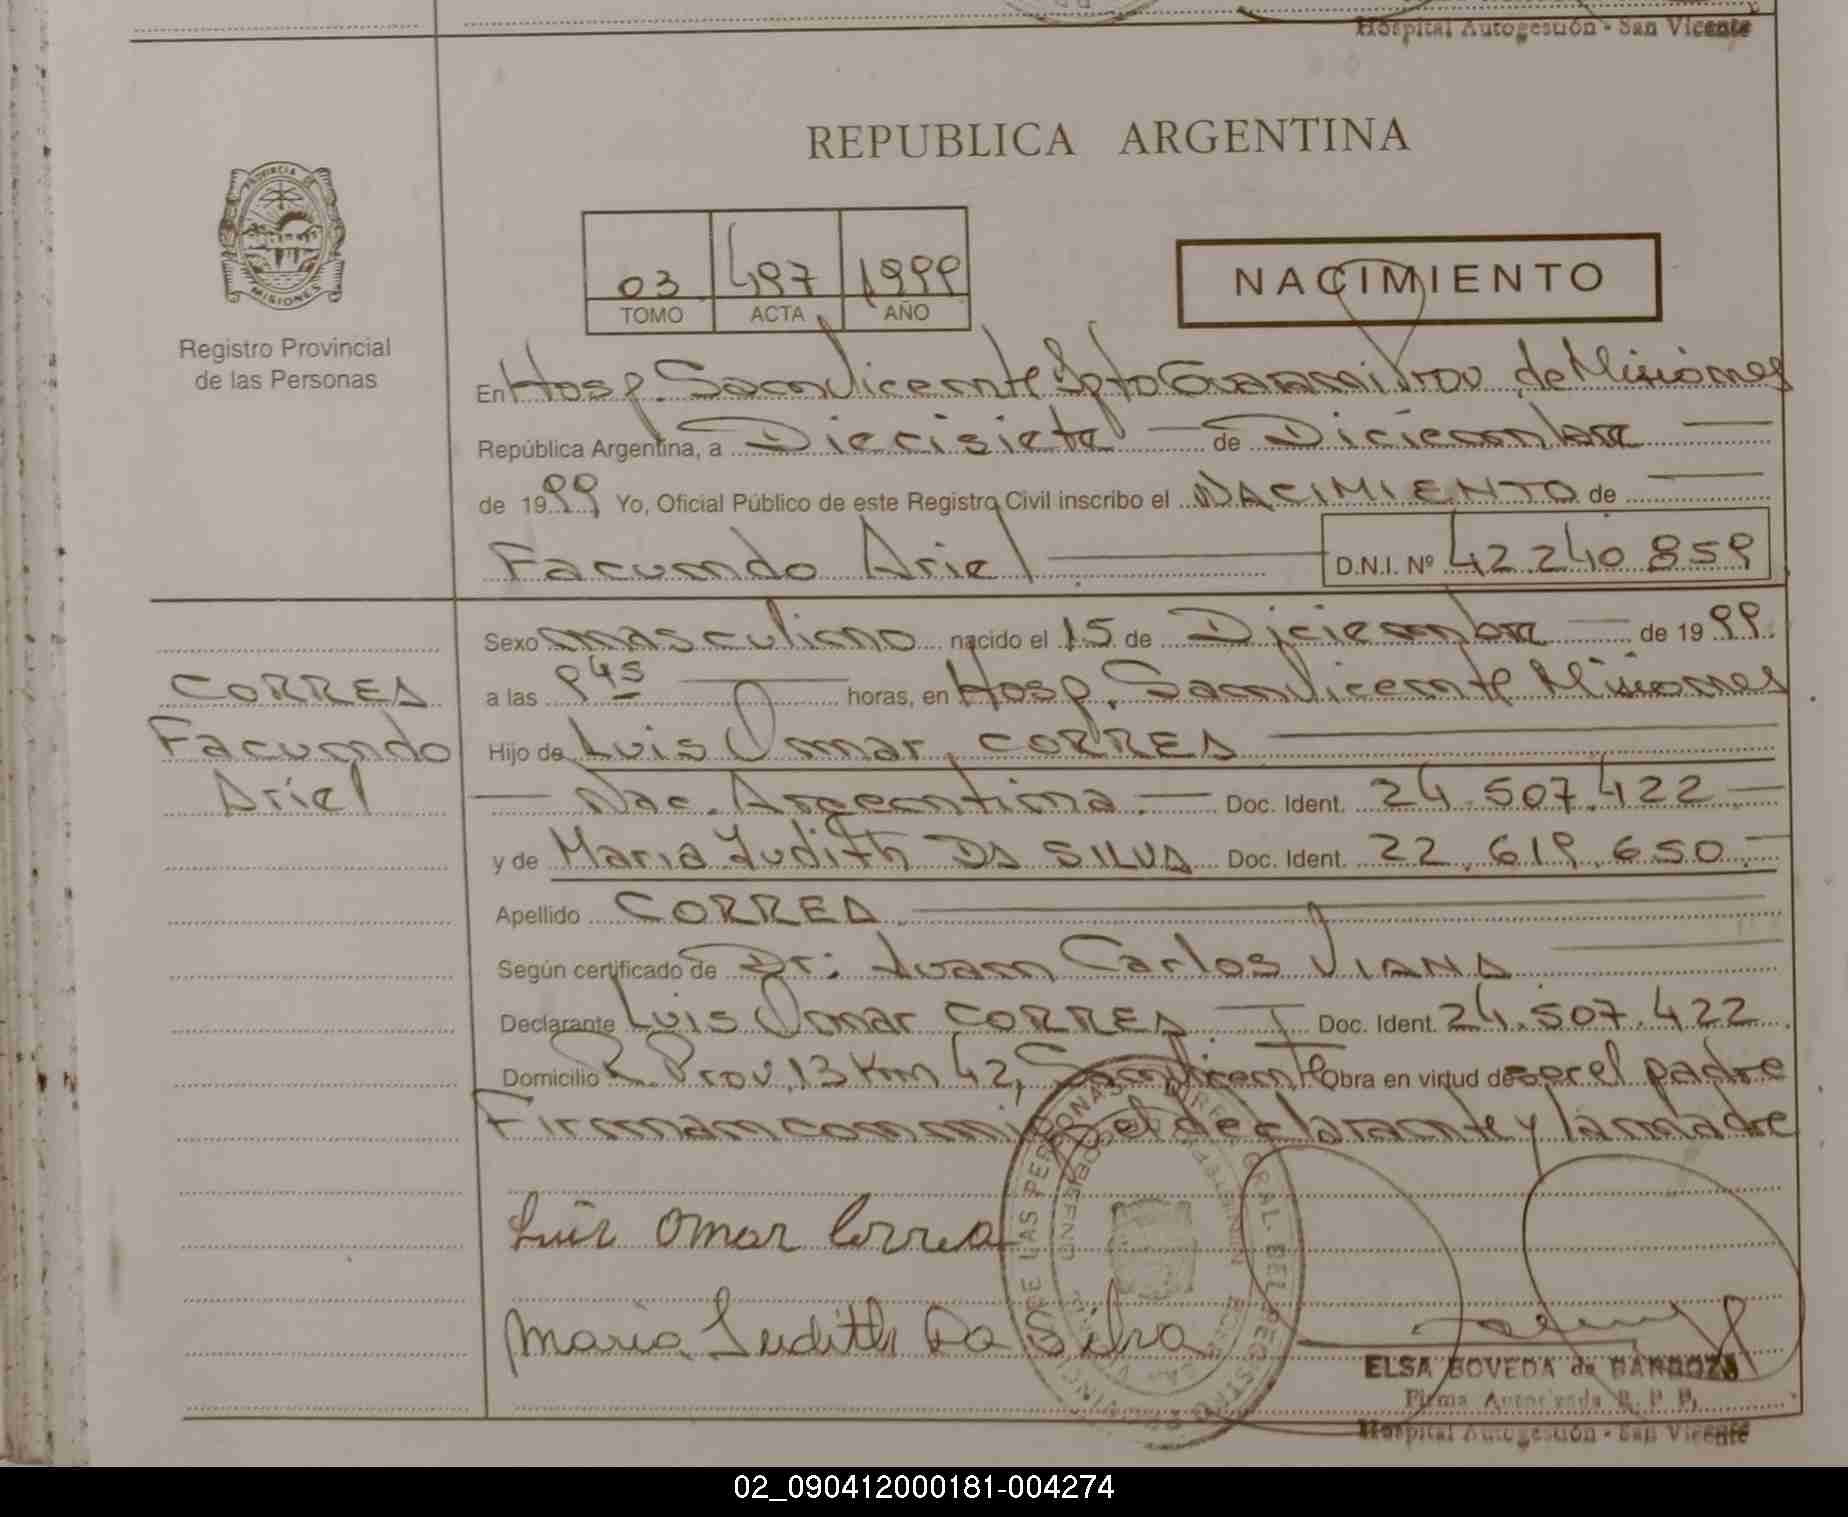 Hospital Autogestión - San Vicente
REPUBLICA ARGENTINA
PROVINCIA DE
MISIONES
Registro Provincial
de las Personas
03 497 1999
TOMO ACTA AÑO
NACIMIENTO
En Hosp. San Vicente Dpto Guaraní Prov. de Misiones
República Argentina, a Diecisiete de Diciembre
de 1999 Yo, Oficial Público de este Registro Civil inscribo el NACIMIENTO de
Facundo Ariel D.N.I. Nº 42.240.859
CORREA
Facundo
Ariel
Sexo masculino nacido el 15 de Diciembre de 1999.
a las 9 45 horas, en Hosp. San Vicente Misiones
Hijo de Luis Omar CORREA
Nac. Argentina.— Doc. Ident. 24.507.422.—
y de Maria Judith DA SILVA Doc. Ident. 22.619.650.—
Apellido CORREA
Según certificado de Dr: Juan Carlos VIANA
Declarante Luis Omar CORREA Doc. Ident. 24.507.422
Domicilio R. Prov. 13 Km 42, San Vicente Obra en virtud de ser el padre
Firman conmigo el declarante y la madre
Luis Omar Correa
Maria Judith Da Silva
ELSA BOVEDA de BARBOZA
Firma Autorizada R. P. P.
Hospital Autogestión - San Vicente
02_090412000181-004274